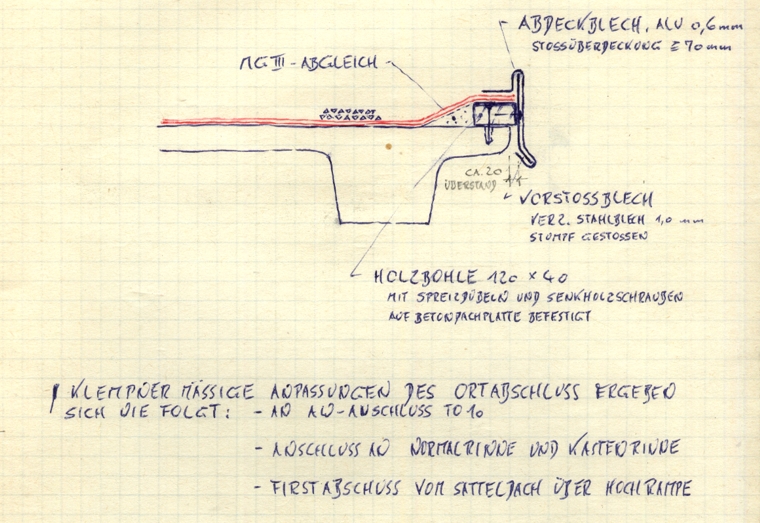 ABDECKBLECH, ALU 0,6mm
STOSSÜBERDECKUNG ≥ 70mm
MG III-ABGLEICH
CA. 20
ÜBERSTAND
VORSTOSSBLECH
VERZ. STAHLBLECH 1,0 mm
STUMPF GESTOSSEN
HOLZBOHLE 120 x 40
MIT SPREIZDÜBELN UND SENKHOLZSCHRAUBEN
AUF BETONDACHPLATTE BEFESTIGT
KLEMPNER MÄSSIGE ANPASSUNGEN DES ORTABSCHLUSS ERGEBEN
SICH WIE FOLGT: - AN AW-ANSCHLUSS TO 10
- ANSCHLUSS AN NORMALRINNE UND KASTENRINNE
- FIRSTABSCHUSS VOM SATTELDACH ÜBER HOCHRAMPE